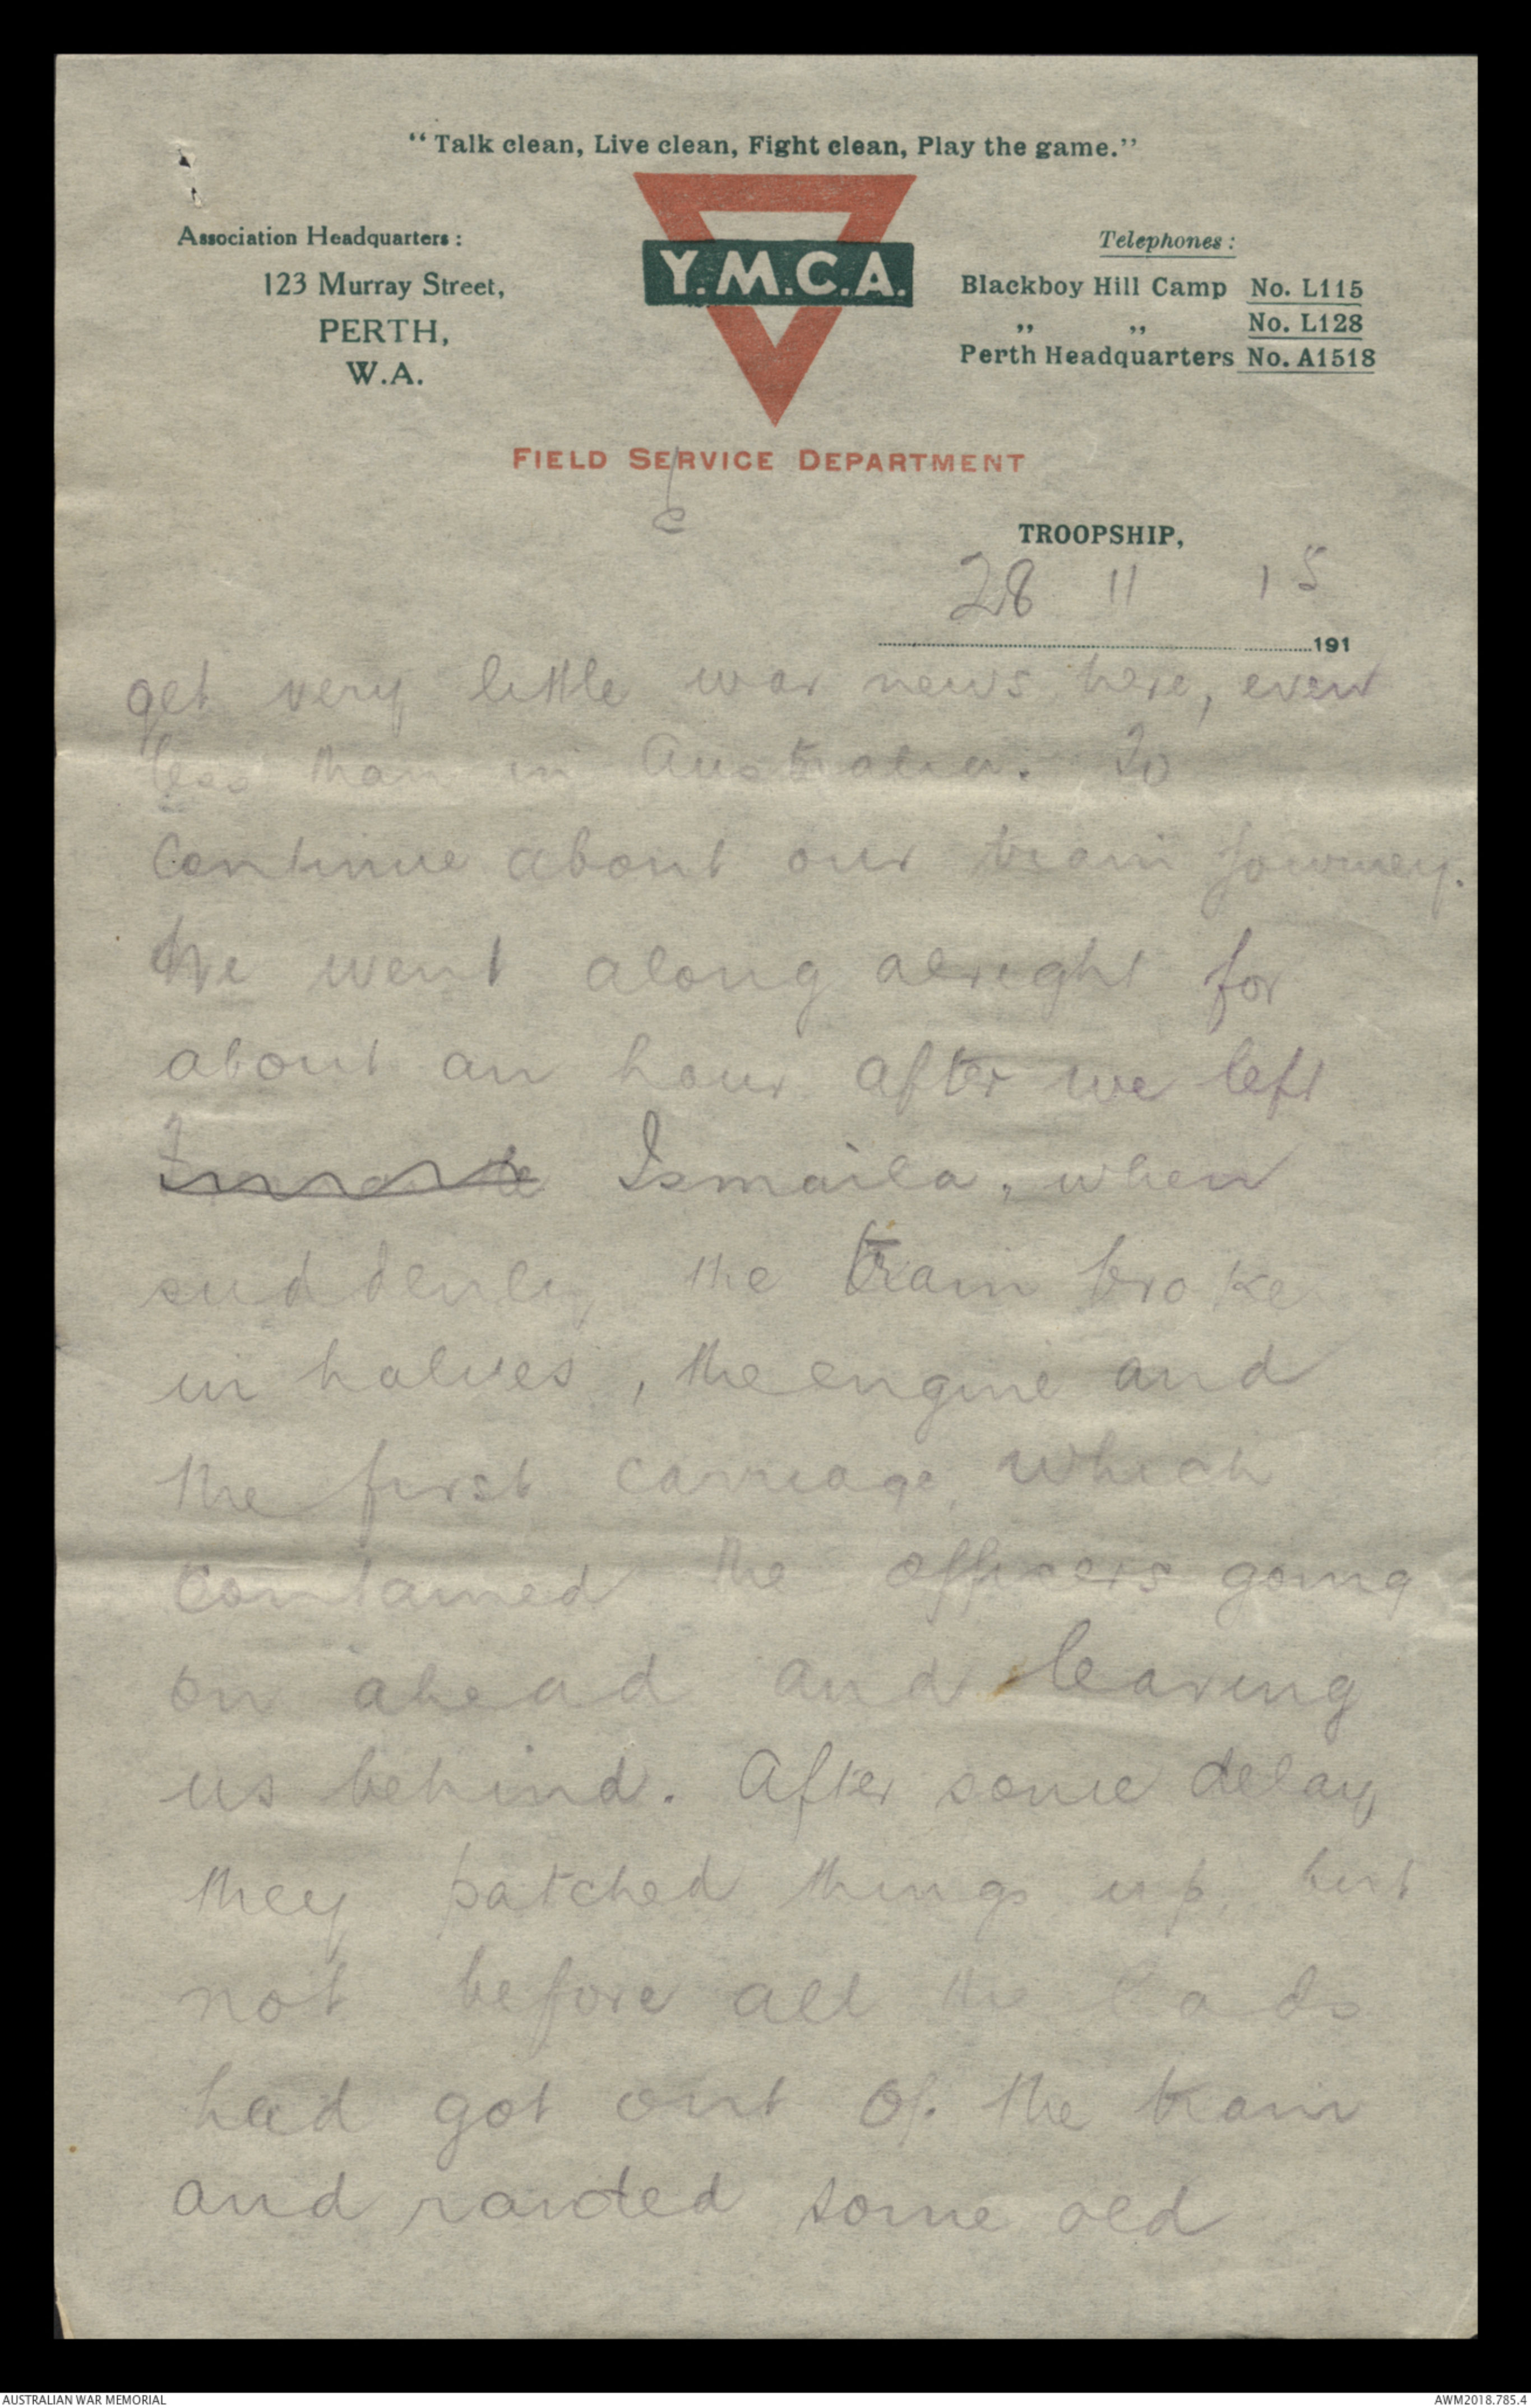 “Talk clean, Live clean, Fight clean, Play the game.”
Association Headquarters :
123 Murray Street,
PERTH,
W.A.
Y.M.C.A.
Telephones :
Blackboy Hill Camp No. L115
„ „ No. L128
Perth Headquarters No. A1518
FIELD SERVICE DEPARTMENT
6
TROOPSHIP,
28 11 15
191
get very little war news here, even
less than in Australia. To
continue about our train journey.
We went along alright for
about an hour after we left
Ismaila, when
suddenly the train broke
in halves, the engine and
the first carriage which
contained the officers going
on ahead and leaving
us behind. After some delay
they patched things up, but
not before all the lads
had got out of the train
and raided some old
AUSTRALIAN WAR MEMORIAL
AWM2018.785.4